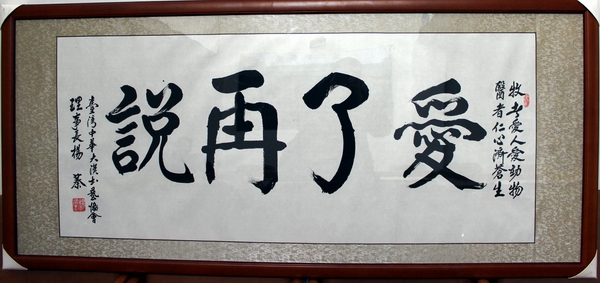 牧者愛人愛動物
醫者仁心濟蒼生
愛了再說
臺灣中華大漢書藝協會
理事長楊